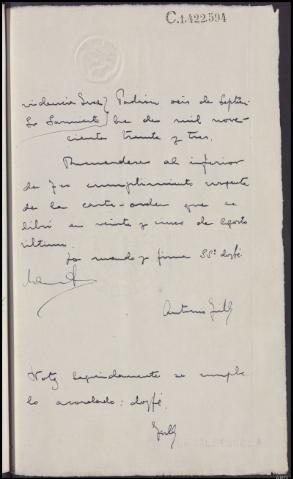 C.1.422.594
videncia Juez } Padrón seis de Septiem
Sr Sarmiento } bre de mil nove-
cientos treinta y tres.
Recuérdese al inferior
de J... cumplimiento respecto
de la carta-orden que se
libró en veinte y cinco de agosto
último.
Lo mandó y firma SSª doyfé.
Antonio
Nota Seguidamente se cumple
lo acordado: doyfé.